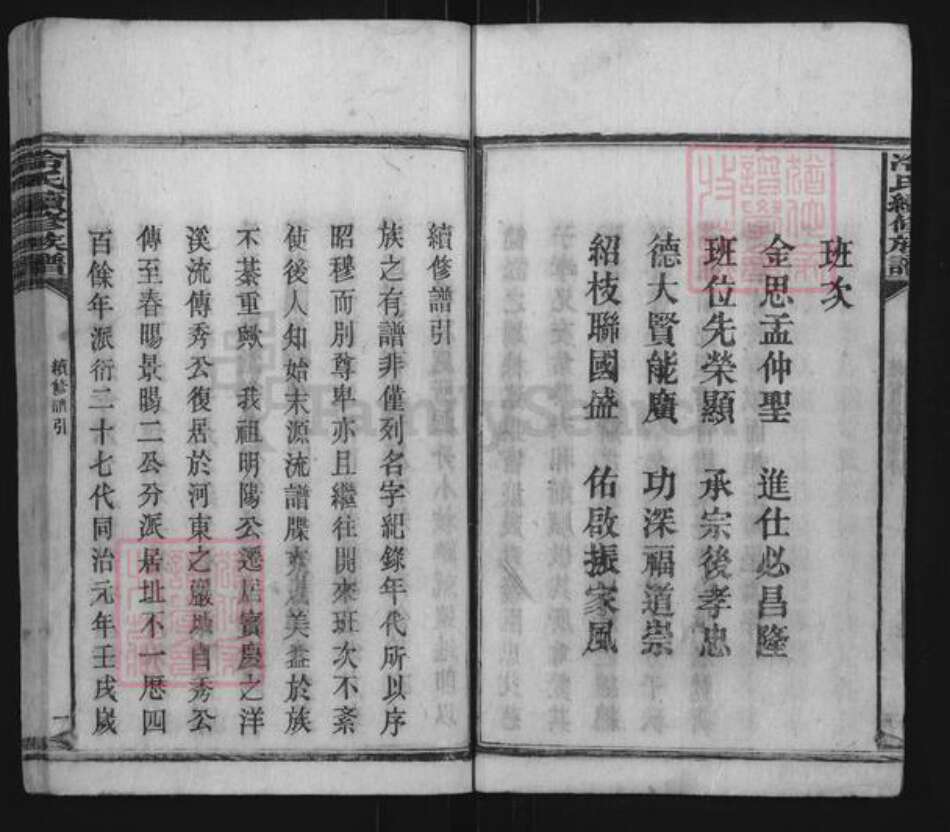 班次
金思孟仲聖　進仕必昌隆
班位先榮顯　承宗後孝忠
德大賢能廣　功深福道崇
紹枝聯國盛　佑啟振家風
續修譜引
族之有譜非僅列名字紀錄年代所以序
昭穆而別尊卑亦且繼往開來班次不紊
使後人知始末源流譜牒美益於族
不綦重歟　我祖明陽公遷居寶慶之洋
溪流傳秀公復居於河東之巖自秀公
傳至春暘景暘二公分派居址不一歷四
百餘年派衍二十七代同治元年壬戌歲
續修譜引
一
氏續修族譜
FamilySearch